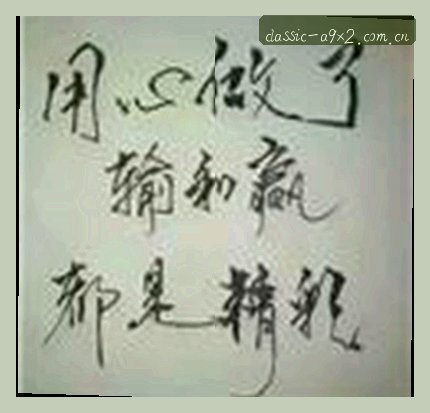 classic-a9x2.com.cn
用心做了
输和赢
都是精彩